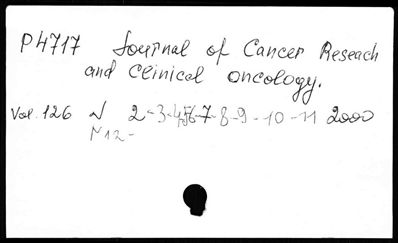 P4717 Journal of Cancer Reseach
and clinical oncology.
Vol. 126 N 2-3-4-5-6-7-8-9-10-11 2000
N12-